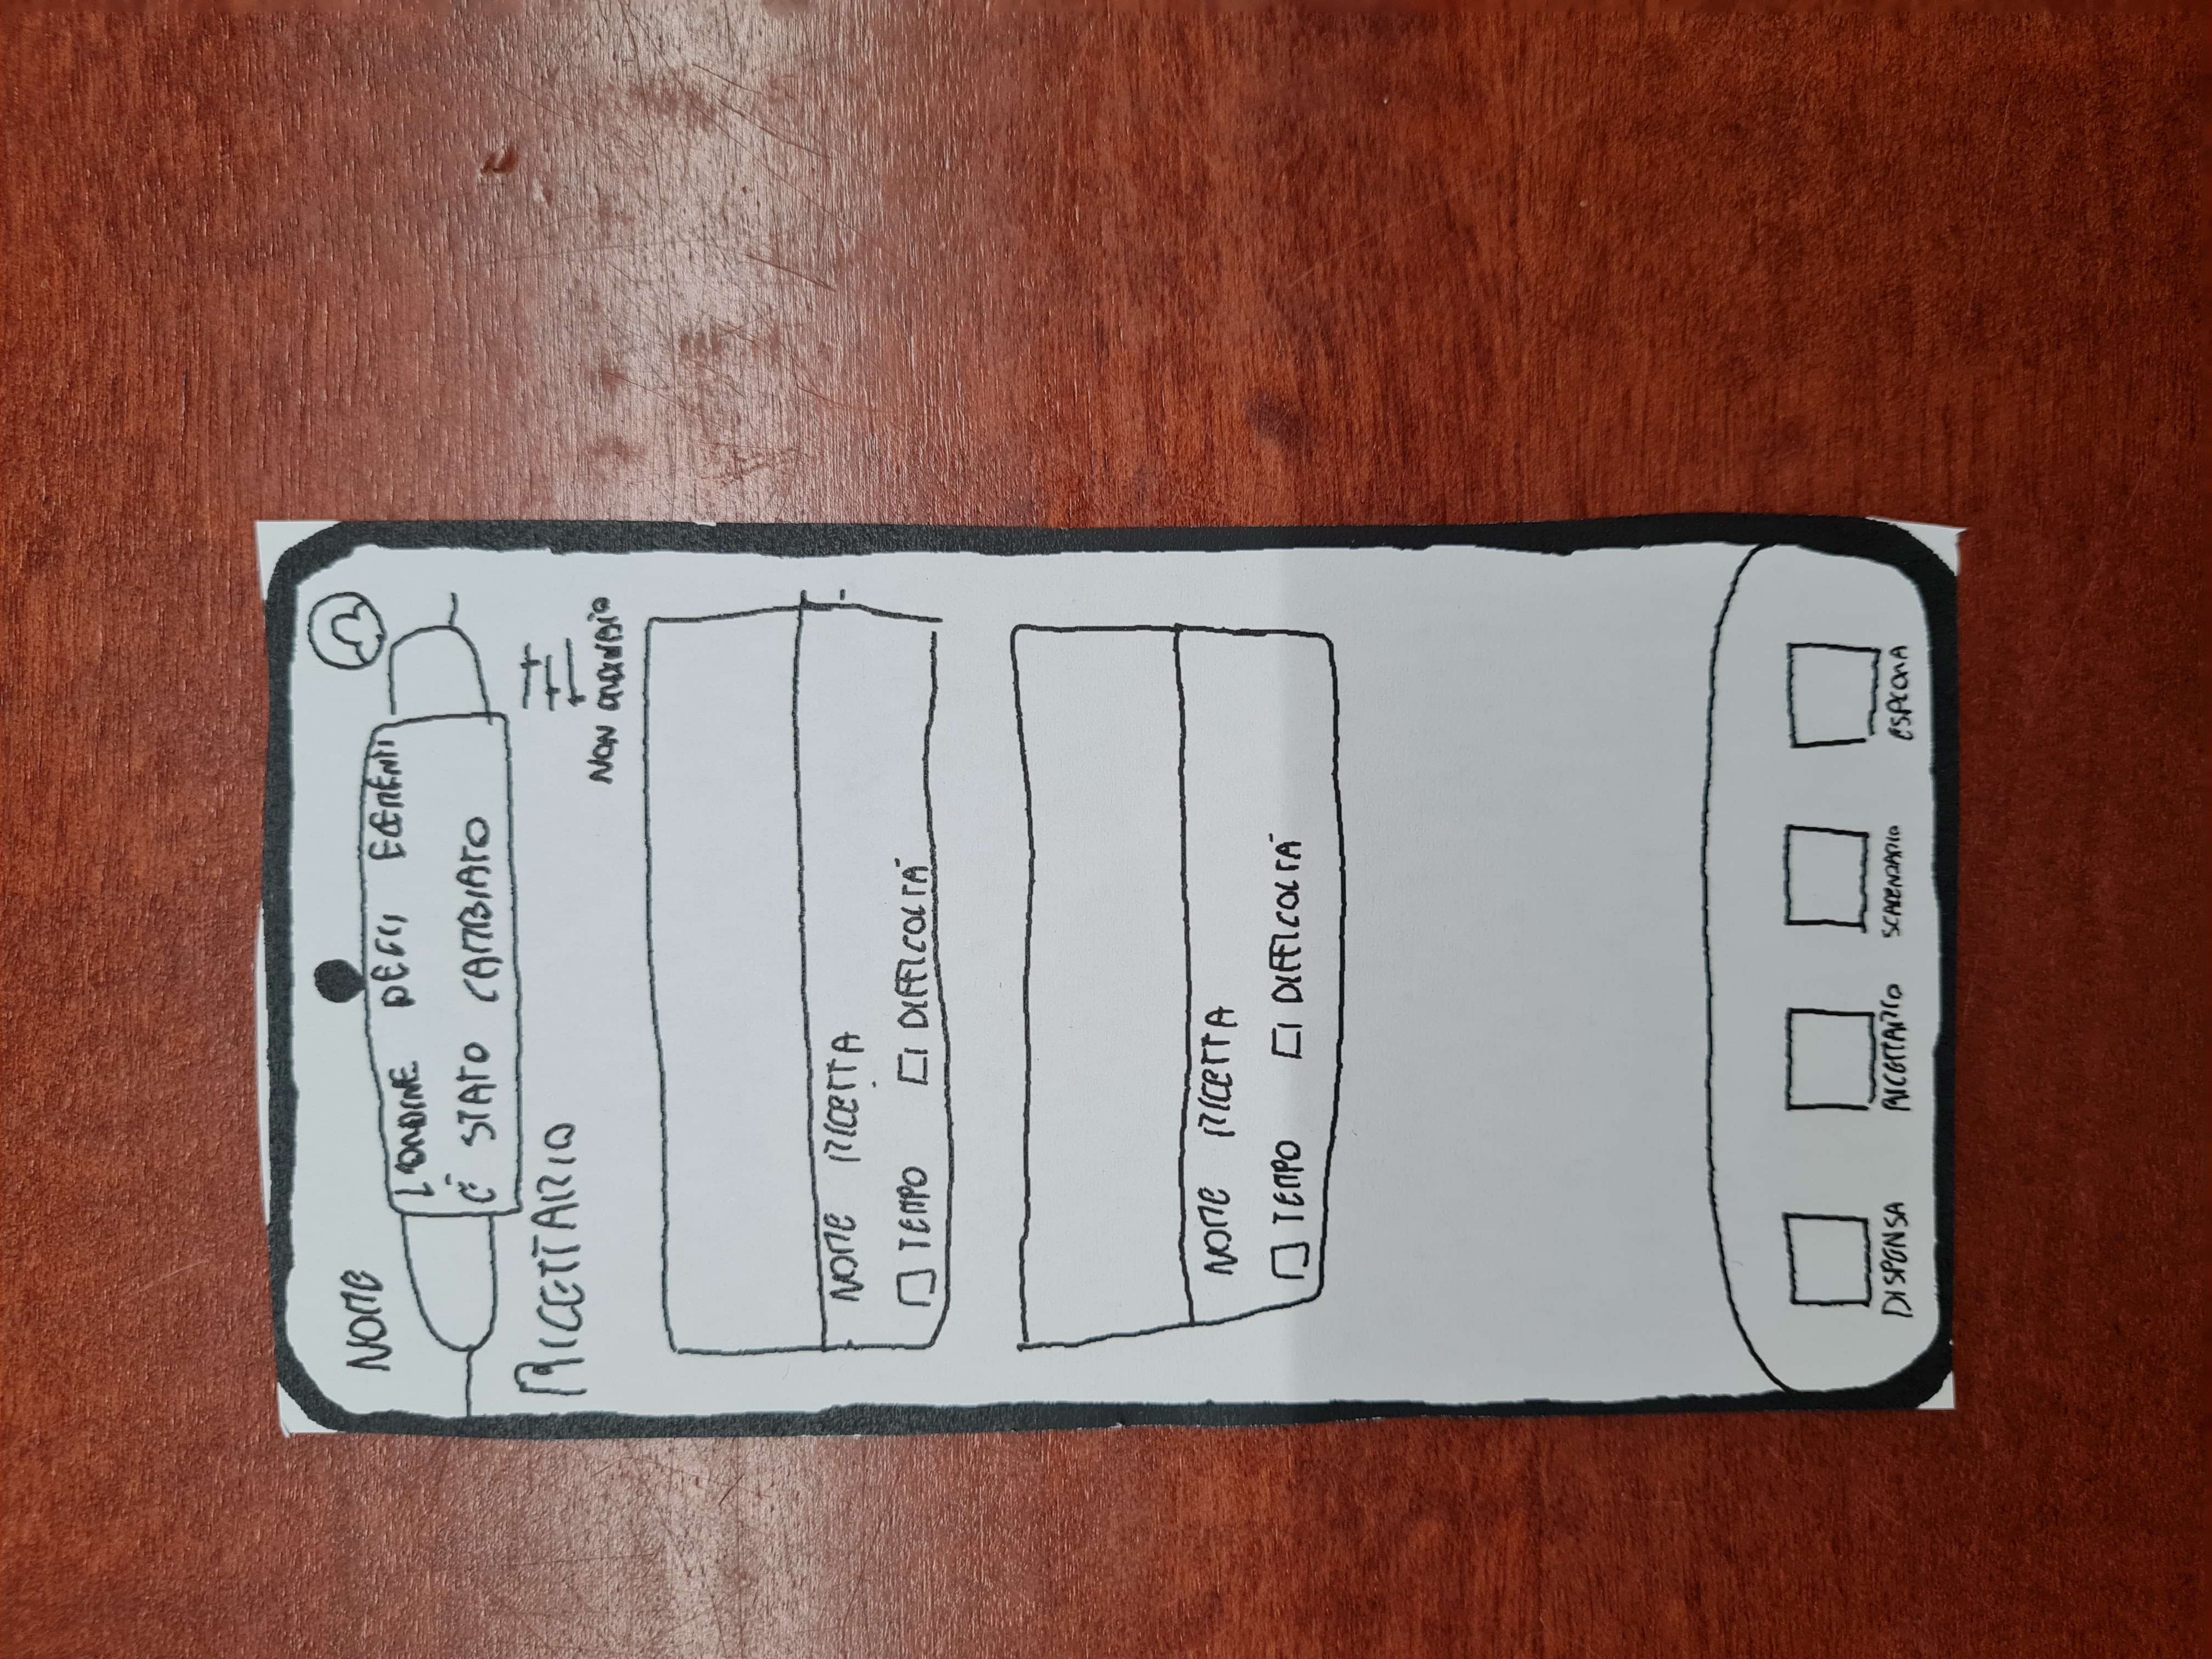 NOME
L'ORDINE DEGLI ELEMENTI
È STATO CAMBIATO
RICETTARIO
NON
NOME RICETTA
TEMPO DIFFICOLTÀ
NOME RICETTA
TEMPO DIFFICOLTÀ
DISPENSA RICETTARIO SCADENZARIO ESPLORA